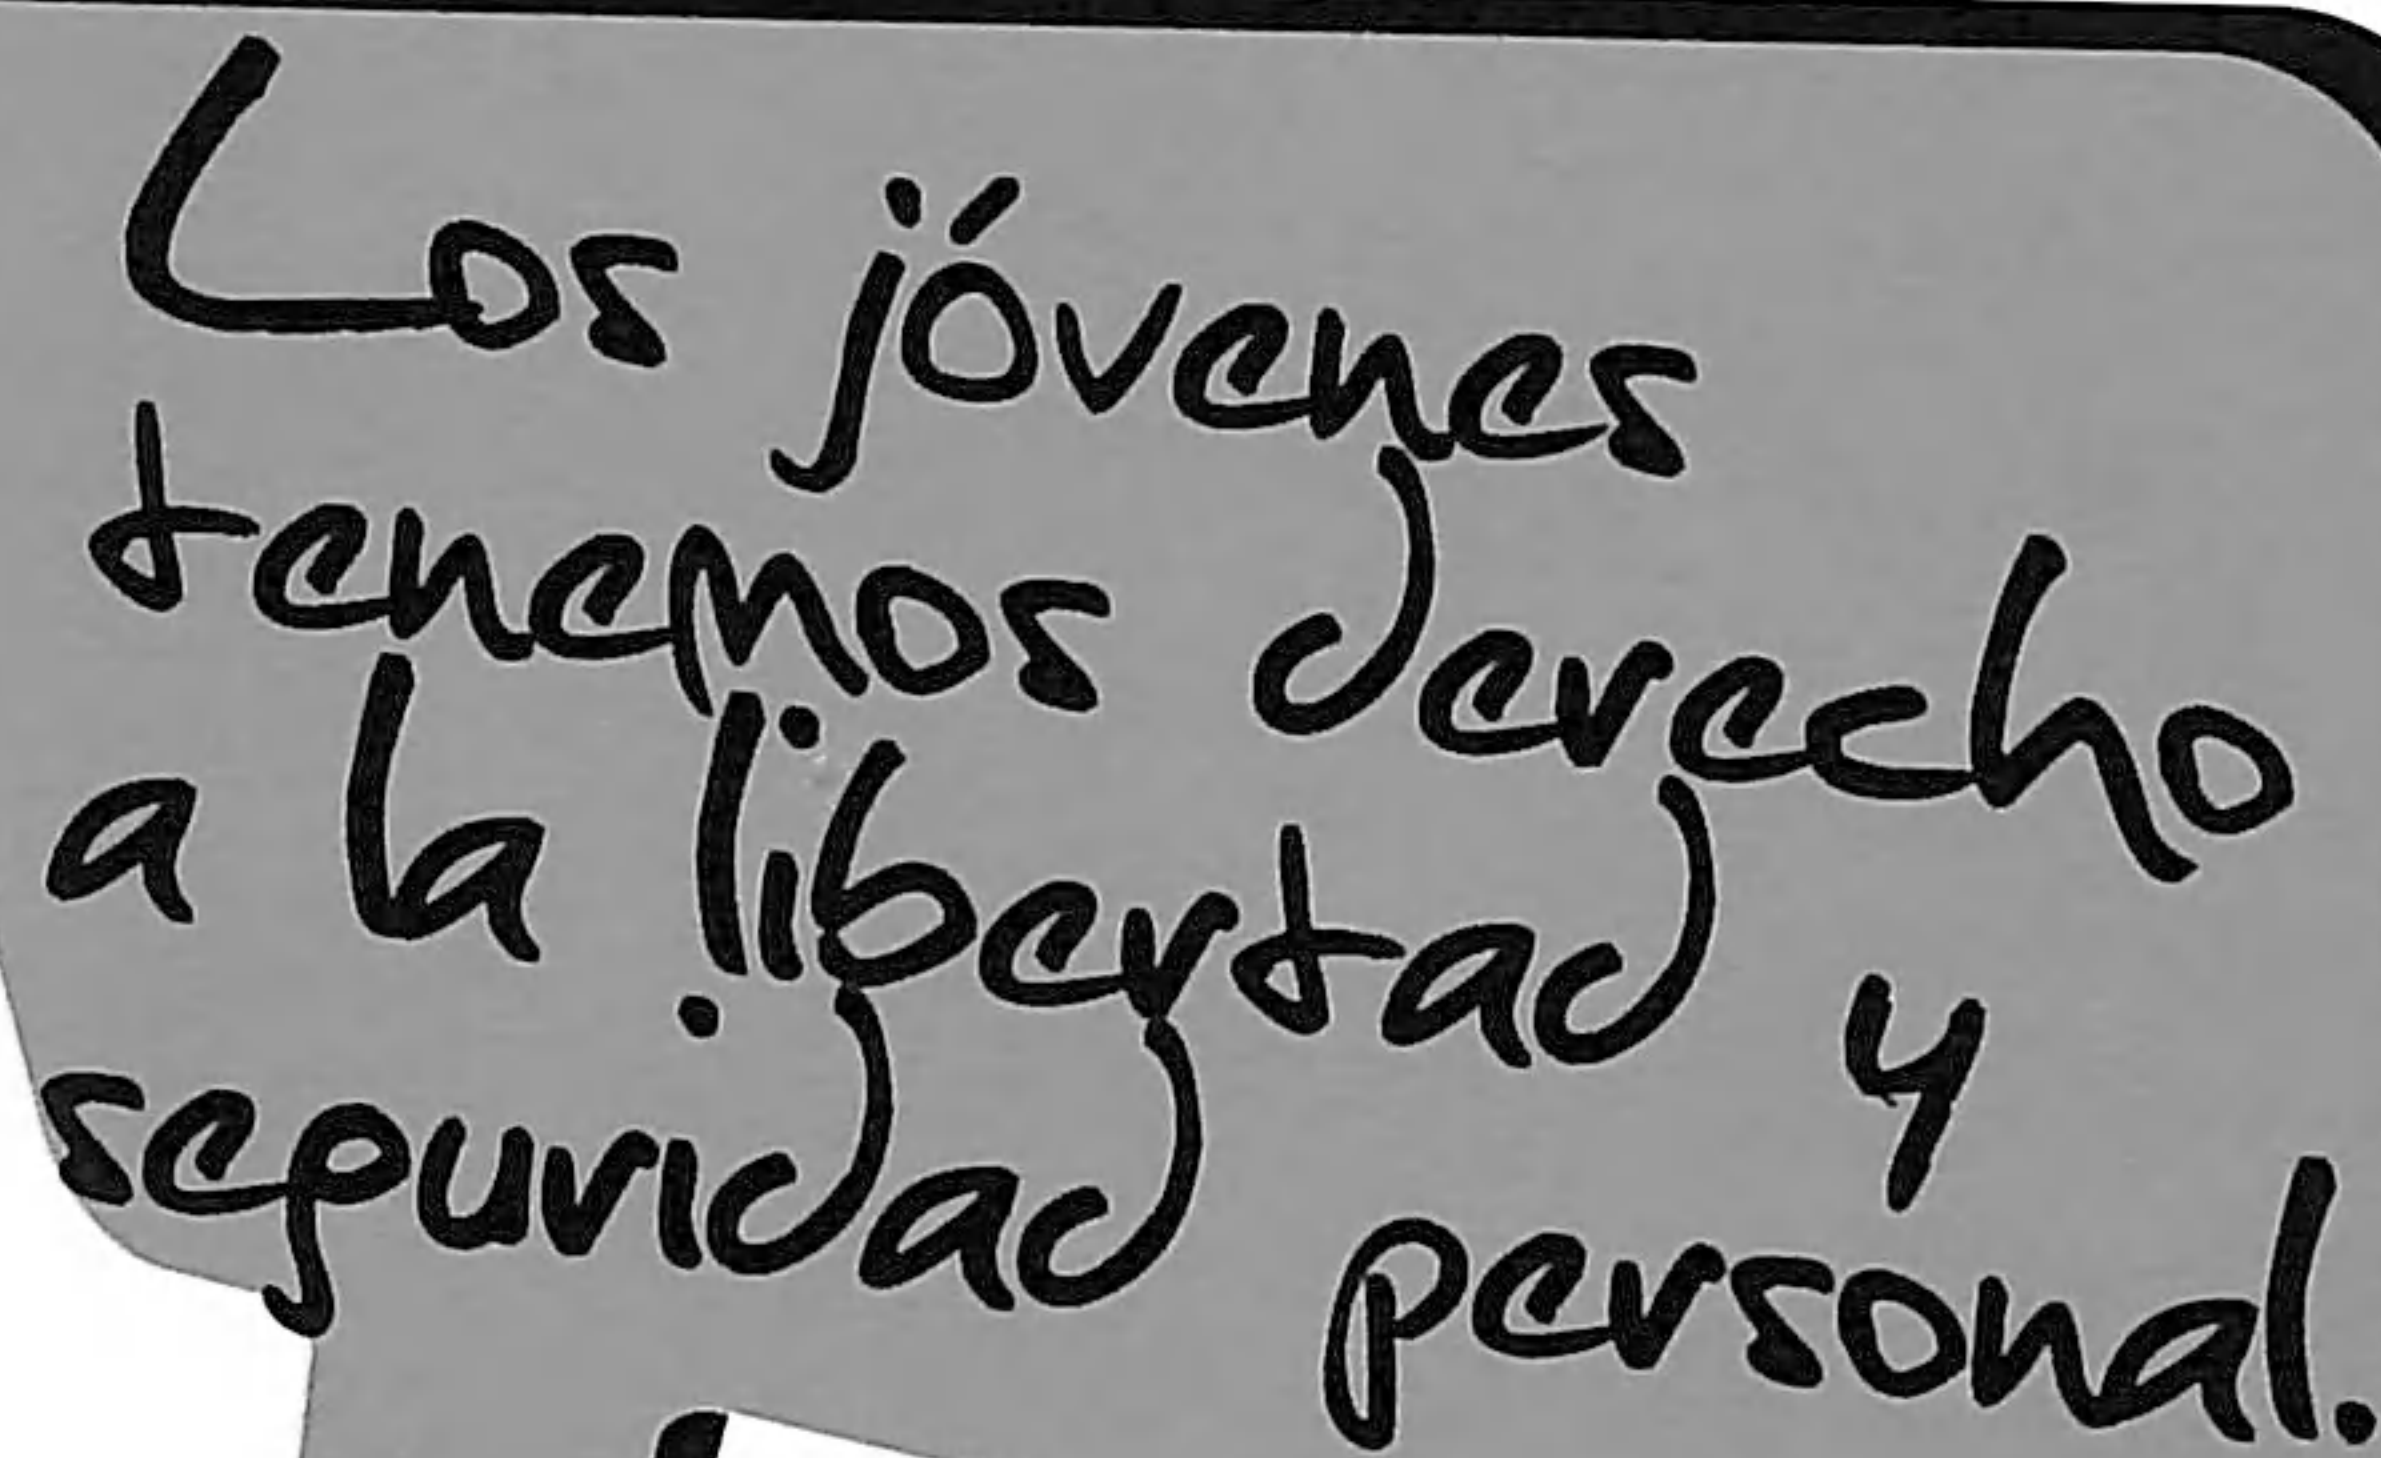 Los jóvenes
tenemos derecho
a la libertad y
seguridad personal.